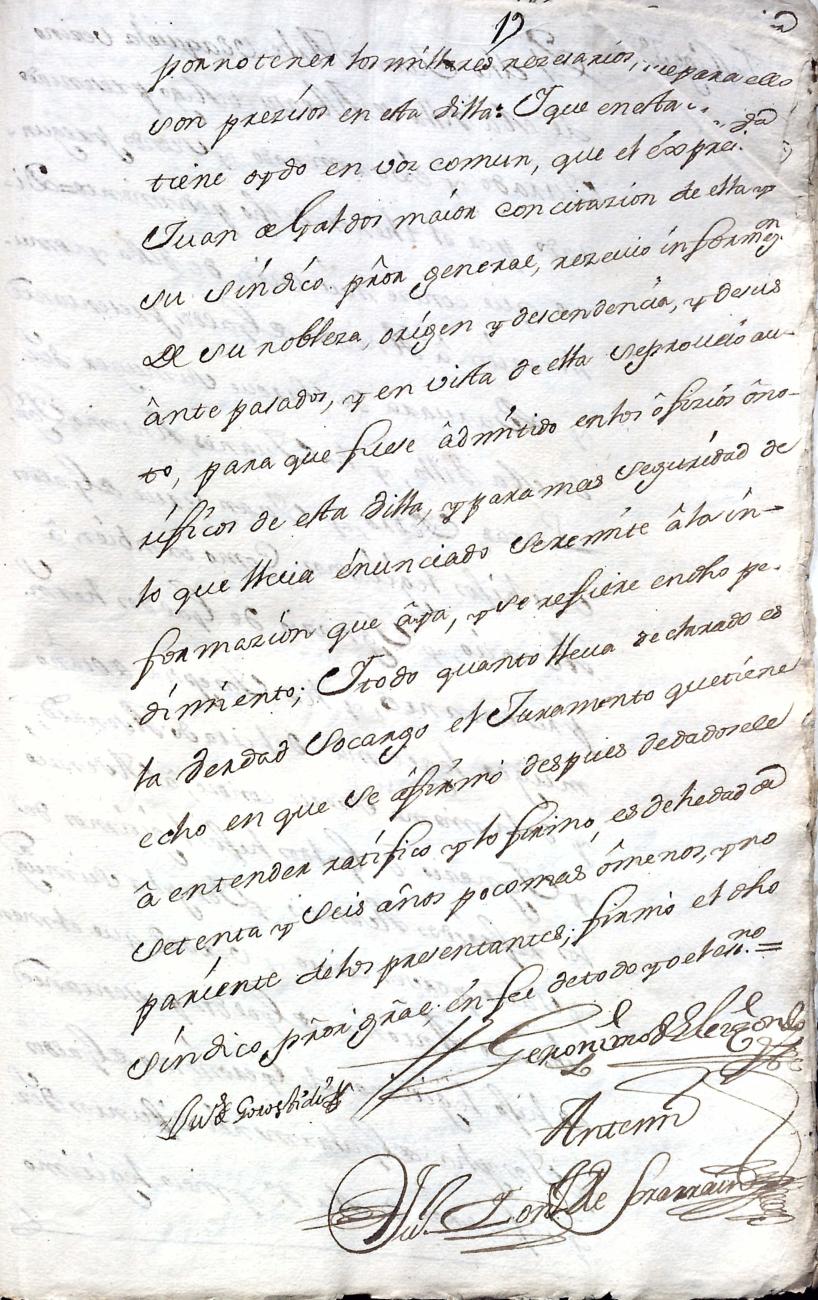 19
por no tener los millares nezesarios, que para ello
son prezisos en esta Villa: Y que en esta
tiene oydo en voz comun, que el expre
Juan de Galdos maior con citazion de ella y
su sindico prõr general, rezevio informon
de su nobleza, origen y descendencia, y de sus
ânte pasados, y en vista de ella se proveió au-
to, para que fuese âdmitido en los ôfizios ôno-
rificos de esta Villa, y para mas seguridad de
lo que lleva énunciado se remite â la în-
formazion que âya, y se refiere en dho pe-
dimiento; Y todo quanto lleva declarado es
la Verdad so cargo el Juramento que tiene
echo en que se âfirmó despues de dadosele
â entender ratifico y lo firmo, es de hedad de
setenta y seis años poco mas ô menos, y no
pariente de los presentantes; firmó el dho
sindico prõr grãl; en fee de todo yo el esno =
Geronimo de Elizondo
Antemi